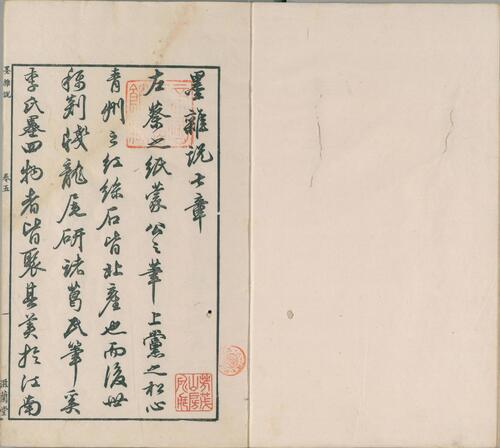 墨雜說七章
左蔡之紙蒙公之筆上黨之松心
青州之紅絲石皆北産也而後世
稱剡牋龍尾研諸葛氏筆奚
李氏墨四物者皆聚其美於江南
墨雜說
卷五
一
滋蘭堂